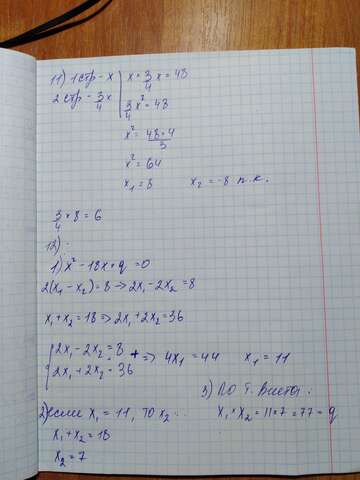 11) 1 стр - x | x · 3/4 x = 48
2 стр - 3/4 x | 3/4 x² = 48
x² = 48·4/3
x² = 64
x₁ = 8   x₂ = -8 п.к.
3/4 × 8 = 6
12) -
1) x² - 18x + q = 0
2(x₁ - x₂) = 8 → 2x₁ - 2x₂ = 8
x₁ + x₂ = 18 => 2x₁ + 2x₂ = 36
{ 2x₁ - 2x₂ = 8 + => 4x₁ = 44   x₁ = 11
{ 2x₁ + 2x₂ = 36
3) ПО т. Виета:
2) если x₁ = 11, то x₂ ...   x₁ × x₂ = 11 × 7 = 77 = q
x₁ + x₂ = 18
x₂ = 7